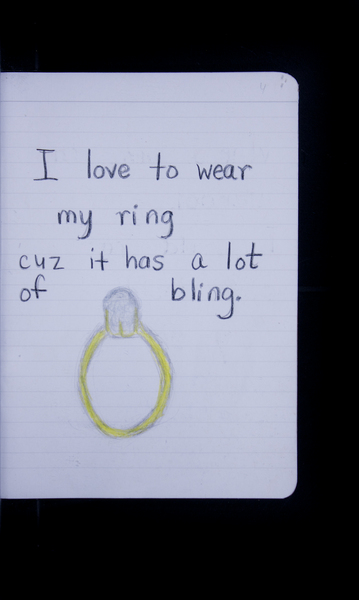 I love to wear
my ring
cuz it has a lot
of bling.